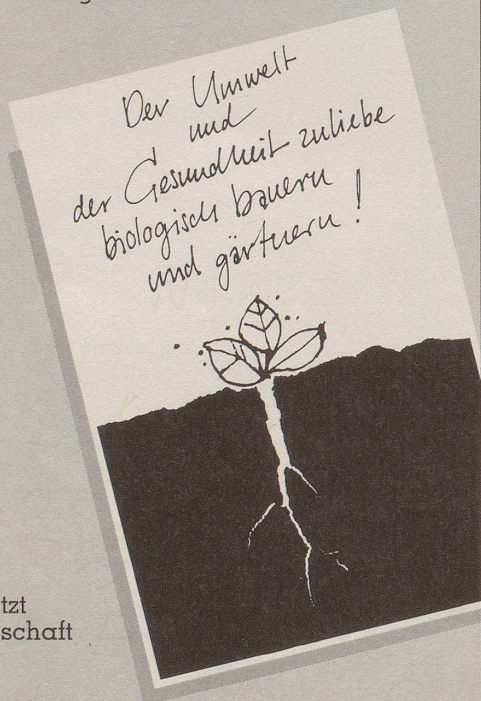 Der Umwelt
und
der Gesundheit zuliebe
biologisch bauern
und gärtnern!
tzt
schaft